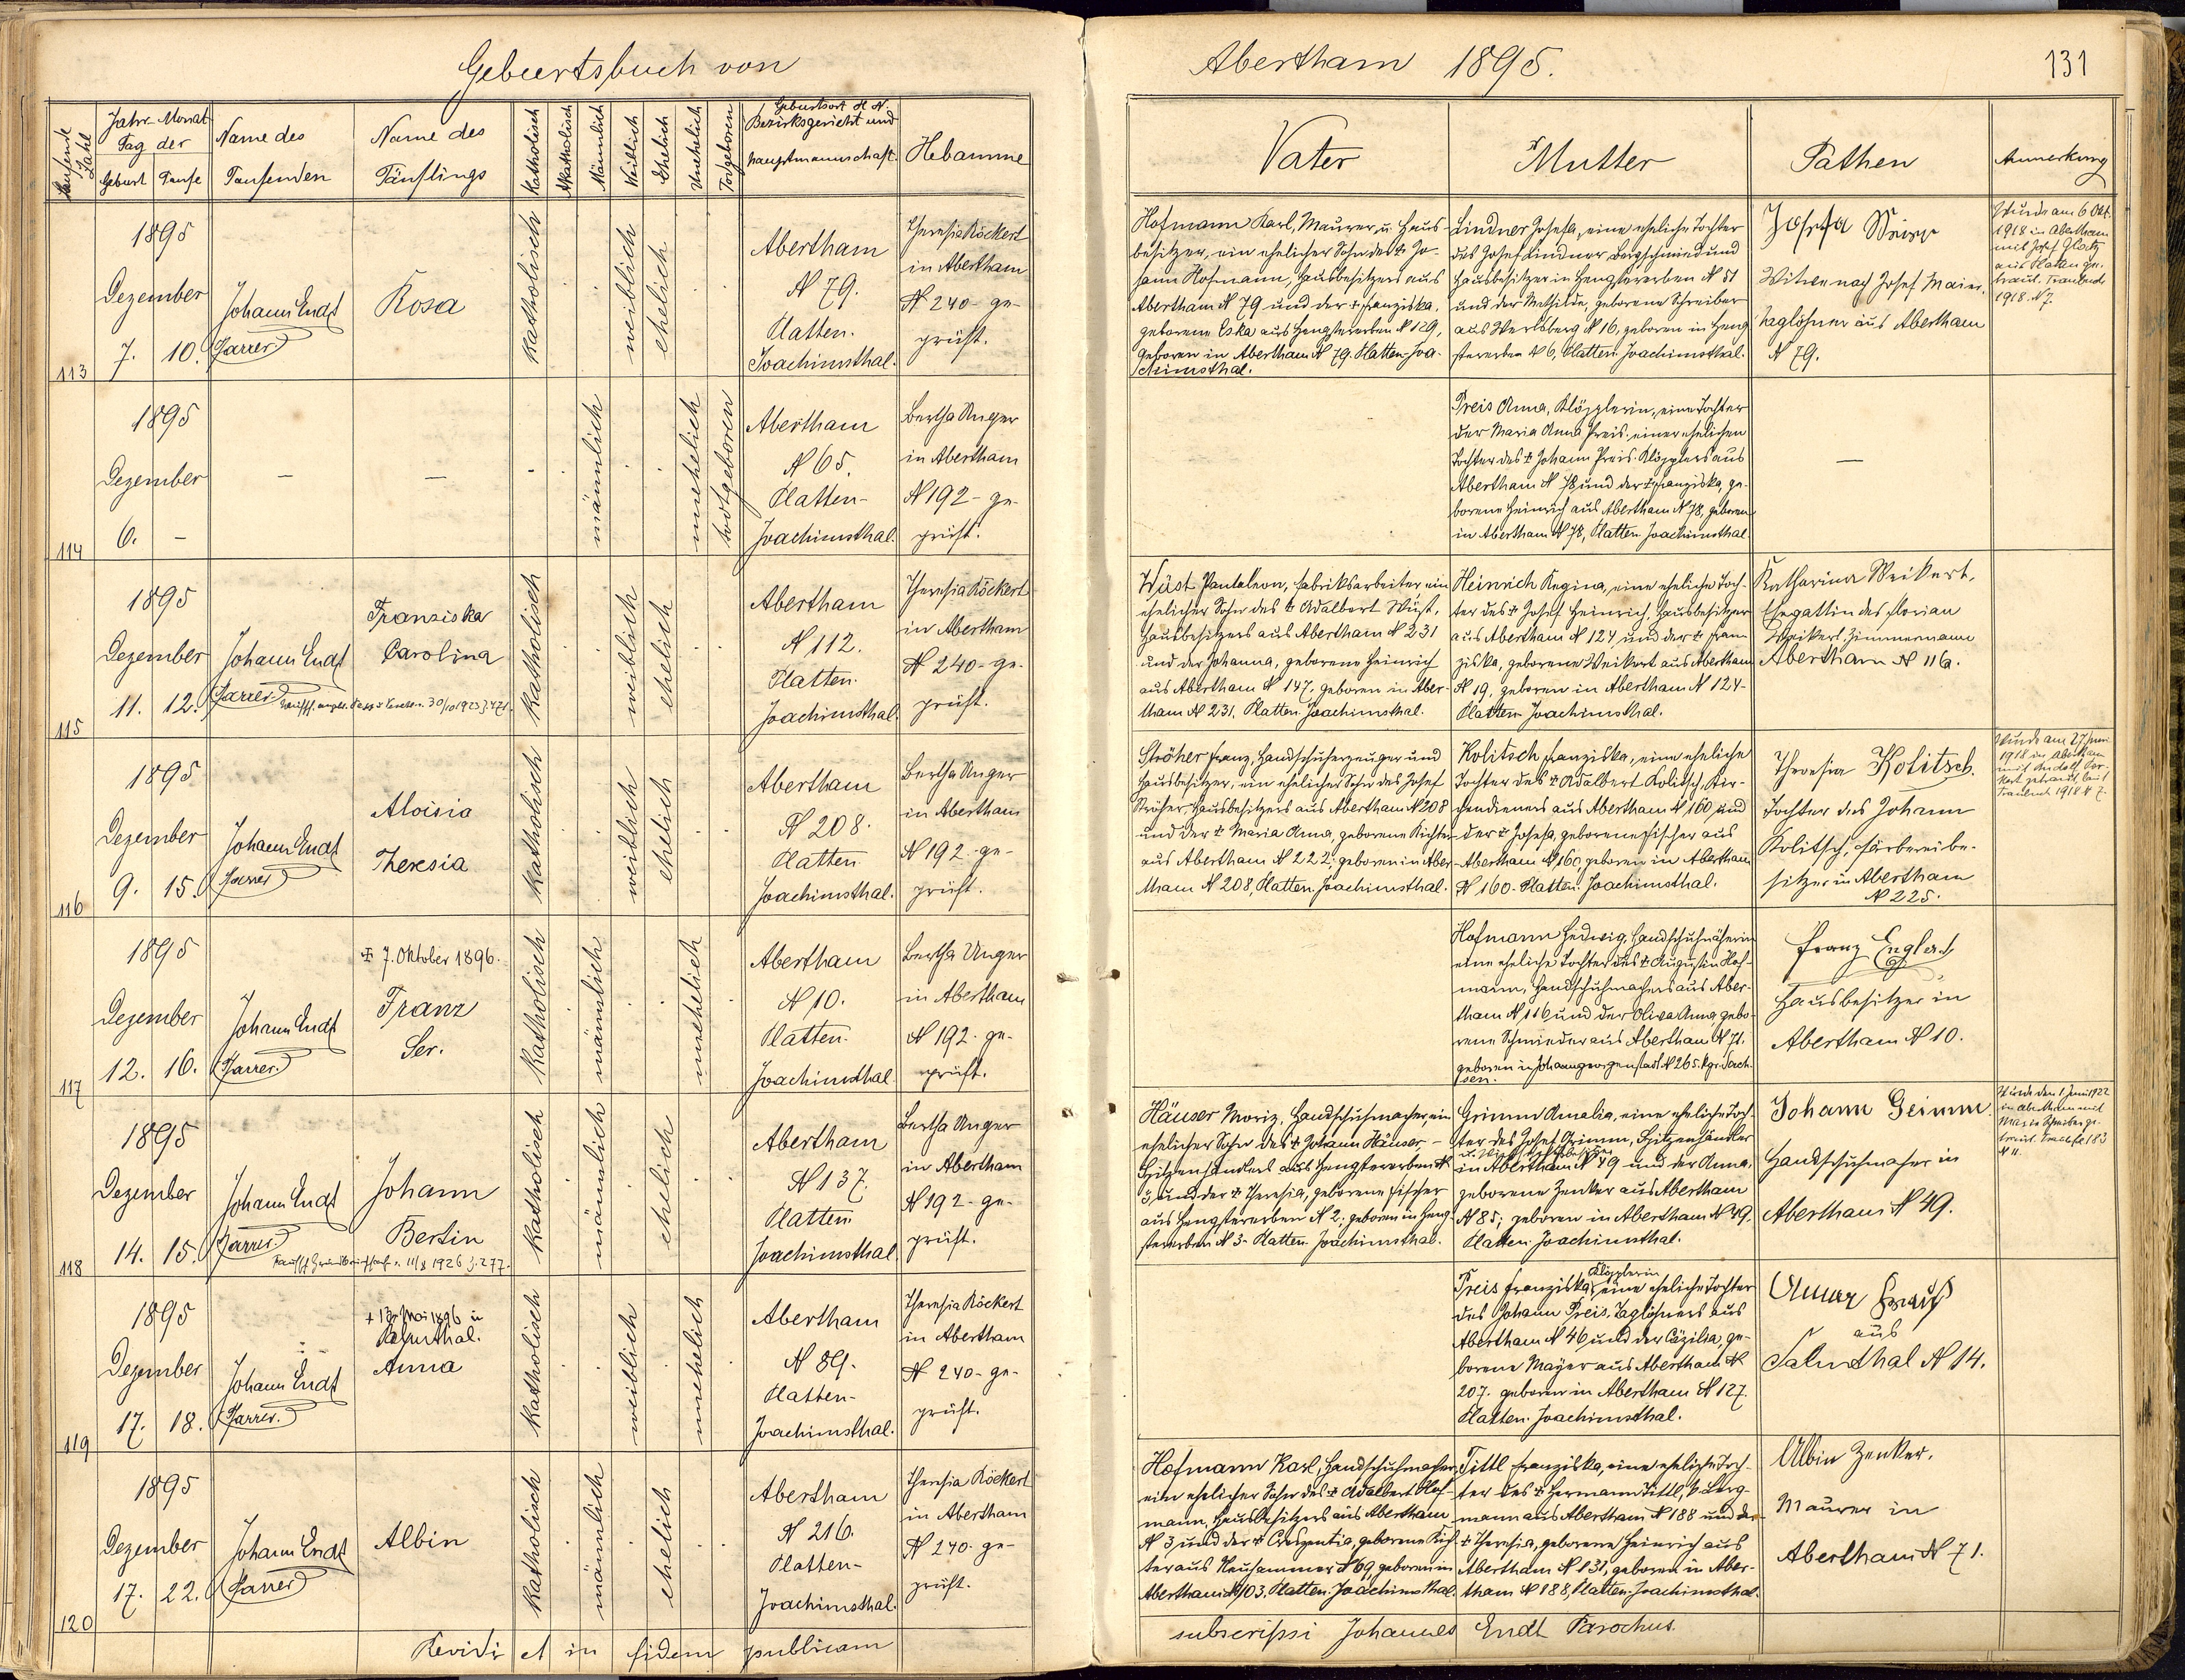 Geburtsbuch von
Abertham 1895.
131
Laufende Zahl
Jahr Monat
Tag der
Geburt Taufe
Name des
Taufenden
Name des
Täuflings
Katholisch
Akatholisch
Männlich
Weiblich
Ehelich
Unehelich
Todgeboren
Geburtsort H N.
Bezirksgericht und
Hauptmannschaft.
Hebamme
Vater
Mutter
Pathen
Anmerkung
113
1895
Dezember
7. 10.
Johann Endt
Pfarrer
Rosa
katholisch
weiblich
ehelich
Abertham
N 79.
Platten.
Joachimsthal.
Theresia Röckert
in Abertham
N 240 - ge-
prüft.
Hofmann Karl, Maurer u. Haus-
besitzer, ein ehelicher Sohn des ☨ Jo-
hann Hofmann, Hausbesitzers aus
Abertham N 79 und der ☨ Franziska,
geborene Eska aus Hengstererben N 129,
geboren in Abertham N 79. Platten-Joa-
chimsthal.
Lindner Josefa, eine eheliche Tochter
des Josef Lindner, Bergschmied und
Hausbesitzer in Hengstererben N 51
und der Mathilde, geborene Schreiber
aus Werlsberg N 16, geboren in Heng-
stererben N 6, Platten Joachimsthal.
Josefa
Witwe nach Josef Maier,
Taglöhner aus Abertham
N 79.
Wurde am 6 Okt.
1918 in Abertham
mit Josef
aus Platten ge-
traut. Traubuch
1918. N 7.
114
1895
Dezember
6. -
-
-
männlich
unehelich
todgeboren
Abertham
N 65.
Platten-
Joachimsthal.
Bertha Unger
in Abertham
N 192 - ge-
prüft.
Preis Anna, Klöpplerin, eine Tochter
der Maria Anna Preis, einer ehelichen
Tochter des ☨ Johann Preis, Klöpplers aus
Abertham N 78 und der ☨ Franziska, ge-
borene Heinrich aus Abertham N 78, geboren
in Abertham N 78, Platten Joachimsthal.
-
115
1895
Dezember
11. 12.
Johann Endt
Pfarrer
Franziska
Carolina
30/10 1923 Z. 471.
katholisch
weiblich
ehelich
Abertham
N 112.
Platten.
Joachimsthal.
Theresia Röckert
in Abertham
N 240 - ge-
prüft.
Wüst Pantaleon, Fabriksarbeiter, ein
ehelicher Sohn des ☨ Adalbert Wüst,
Hausbesitzers aus Abertham N 231
und der Johanna, geborene Heinrich
aus Abertham N 147, geboren in Aber-
tham N 231. Platten. Joachimsthal.
Heinrich Regina, eine eheliche Toch-
ter des ☨ Josef Heinrich, Hausbesitzer
aus Abertham N 124 und der ☨ Fran-
ziska, geborene Weikert aus Abertham
N 19, geboren in Abertham N 124-
Platten Joachimsthal.
Katharina Weikert,
Ehegattin des Florian
Weikert, Zimmermann
Abertham N 116.
116
1895
Dezember
9. 15.
Johann Endt
Pfarrer
Aloisia
Theresia
katholisch
weiblich
ehelich
Abertham
N 208.
Platten
Joachimsthal.
Bertha Unger
in Abertham
N 192 - ge-
prüft.
Ströher Franz, Handschuherzeuger und
Hausbesitzer, ein ehelicher Sohn des Josef
Ströher, Hausbesitzers aus Abertham N 208
und der ☨ Maria Anna, geborene Richter
aus Abertham N 222, geboren in Aber-
tham N 208, Platten. Joachimsthal.
Kolitsch Franziska, eine eheliche
Tochter des ☨ Adalbert Kolitsch, Kir-
chendieners aus Abertham N 160 und
der ☨ Josefa, geborene Fischer aus
Abertham N 160, geboren in Abertham
N 160. Platten. Joachimsthal.
Theresia Kolitsch.
Tochter des Johann
Kolitsch, Färbereibe-
sitzer in Abertham
N 225.
Wurde am 27. Juni
1918 in Abertham
mit Rudolf
getraut, laut
Traubuch 1918 N 7.
117
1895
Dezember
12. 16.
Johann Endt
Pfarrer.
☨ 7. Oktober 1896.
Franz
Ser.
katholisch
männlich
unehelich
Abertham
N 10.
Platten.
Joachimsthal
Bertha Unger
in Abertham
N 192. ge-
prüft.
Hofmann Hedwig, Handschuhnäherin
eine eheliche Tochter des ☨ Augustin Hof-
mann, Handschuhmachers aus Aber-
tham N 116 und der Oliva Anna, gebo-
rene Schmieder aus Abertham N 71.
geboren in Johanngeorgenstadt N 265. Kgr. Sach-
sen.
Franz Englert
Hausbesitzer in
Abertham N 10.
118
1895
Dezember
14. 15.
Johann Endt
Pfarrer.
Johann
Bertin
1926 Z. 277.
katholisch
männlich
ehelich
Abertham
N 137.
Platten
Joachimsthal.
Bertha Unger
in Abertham
N 192 - ge-
prüft.
Häuser Moriz, Handschuhmacher, ein
ehelicher Sohn des ☨ Johann Häuser -
Spitzenhändlers aus Hengstererben N
3, und der ☨ Theresia, geborene Fischer
aus Hengstererben N 2; geboren in Heng-
stererben N 3 - Platten Joachimsthal.
Grimm Amalia, eine eheliche Toch-
ter des Josef Grimm, Spitzenhändler
in Abertham N 49 und der Anna,
geborene Zenker aus Abertham
N 85; geboren in Abertham N 49.
Platten Joachimsthal.
Johann Grimm.
Handschuhmacher in
Abertham N 49.
Wurde den 1 Juni 1922
in Abertham mit
Maria Schreiber ge-
traut. 183
N 11.
119
1895
Dezember
17. 18.
Johann Endt
Pfarrer.
Anna
katholisch
weiblich
unehelich
Abertham
N 89.
Platten-
Joachimsthal.
Theresia Röckert
in Abertham
N 240 - ge-
prüft.
Klöpplerin
Preis Franziska, eine eheliche Tochter
des Johann Preis, Taglöhners aus
Abertham N 46 und der Cäzilia, ge-
borene Mayer aus Abertham N
207. geboren in Abertham N 127
Platten. Joachimsthal.
Anna
aus
Salmthal N 14.
120
1895
Dezember
17. 22.
Johann Endt
Pfarrer
Albin
katholisch
männlich
ehelich
Abertham
N 216.
Platten-
Joachimsthal.
Theresia Röckert
in Abertham
N 240. ge-
prüft.
Hofmann Karl, Handschuhmacher,
ein ehelicher Sohn des ☨ Adalbert Hof-
mann, Hausbesitzers aus Abertham
N 3 und der ☨ Creszentia, geborene Rich-
ter aus Neuhammer N 69, geboren in
Abertham N 103. Platten. Joachimsthal.
Tittl Franziska, eine eheliche Toch-
ter des ☨ Hermann Tittl, k. Berg-
mann aus Abertham N 188 und der
☨ Theresia, geborene Heinrich aus
Abertham N 131, geboren in Aber-
tham N 188, Platten. Joachimsthal.
Albin Zenker.
Maurer in
Abertham N 71.
Revidi et in fidem publicam
subscripsi Johannes Endt Parochus.